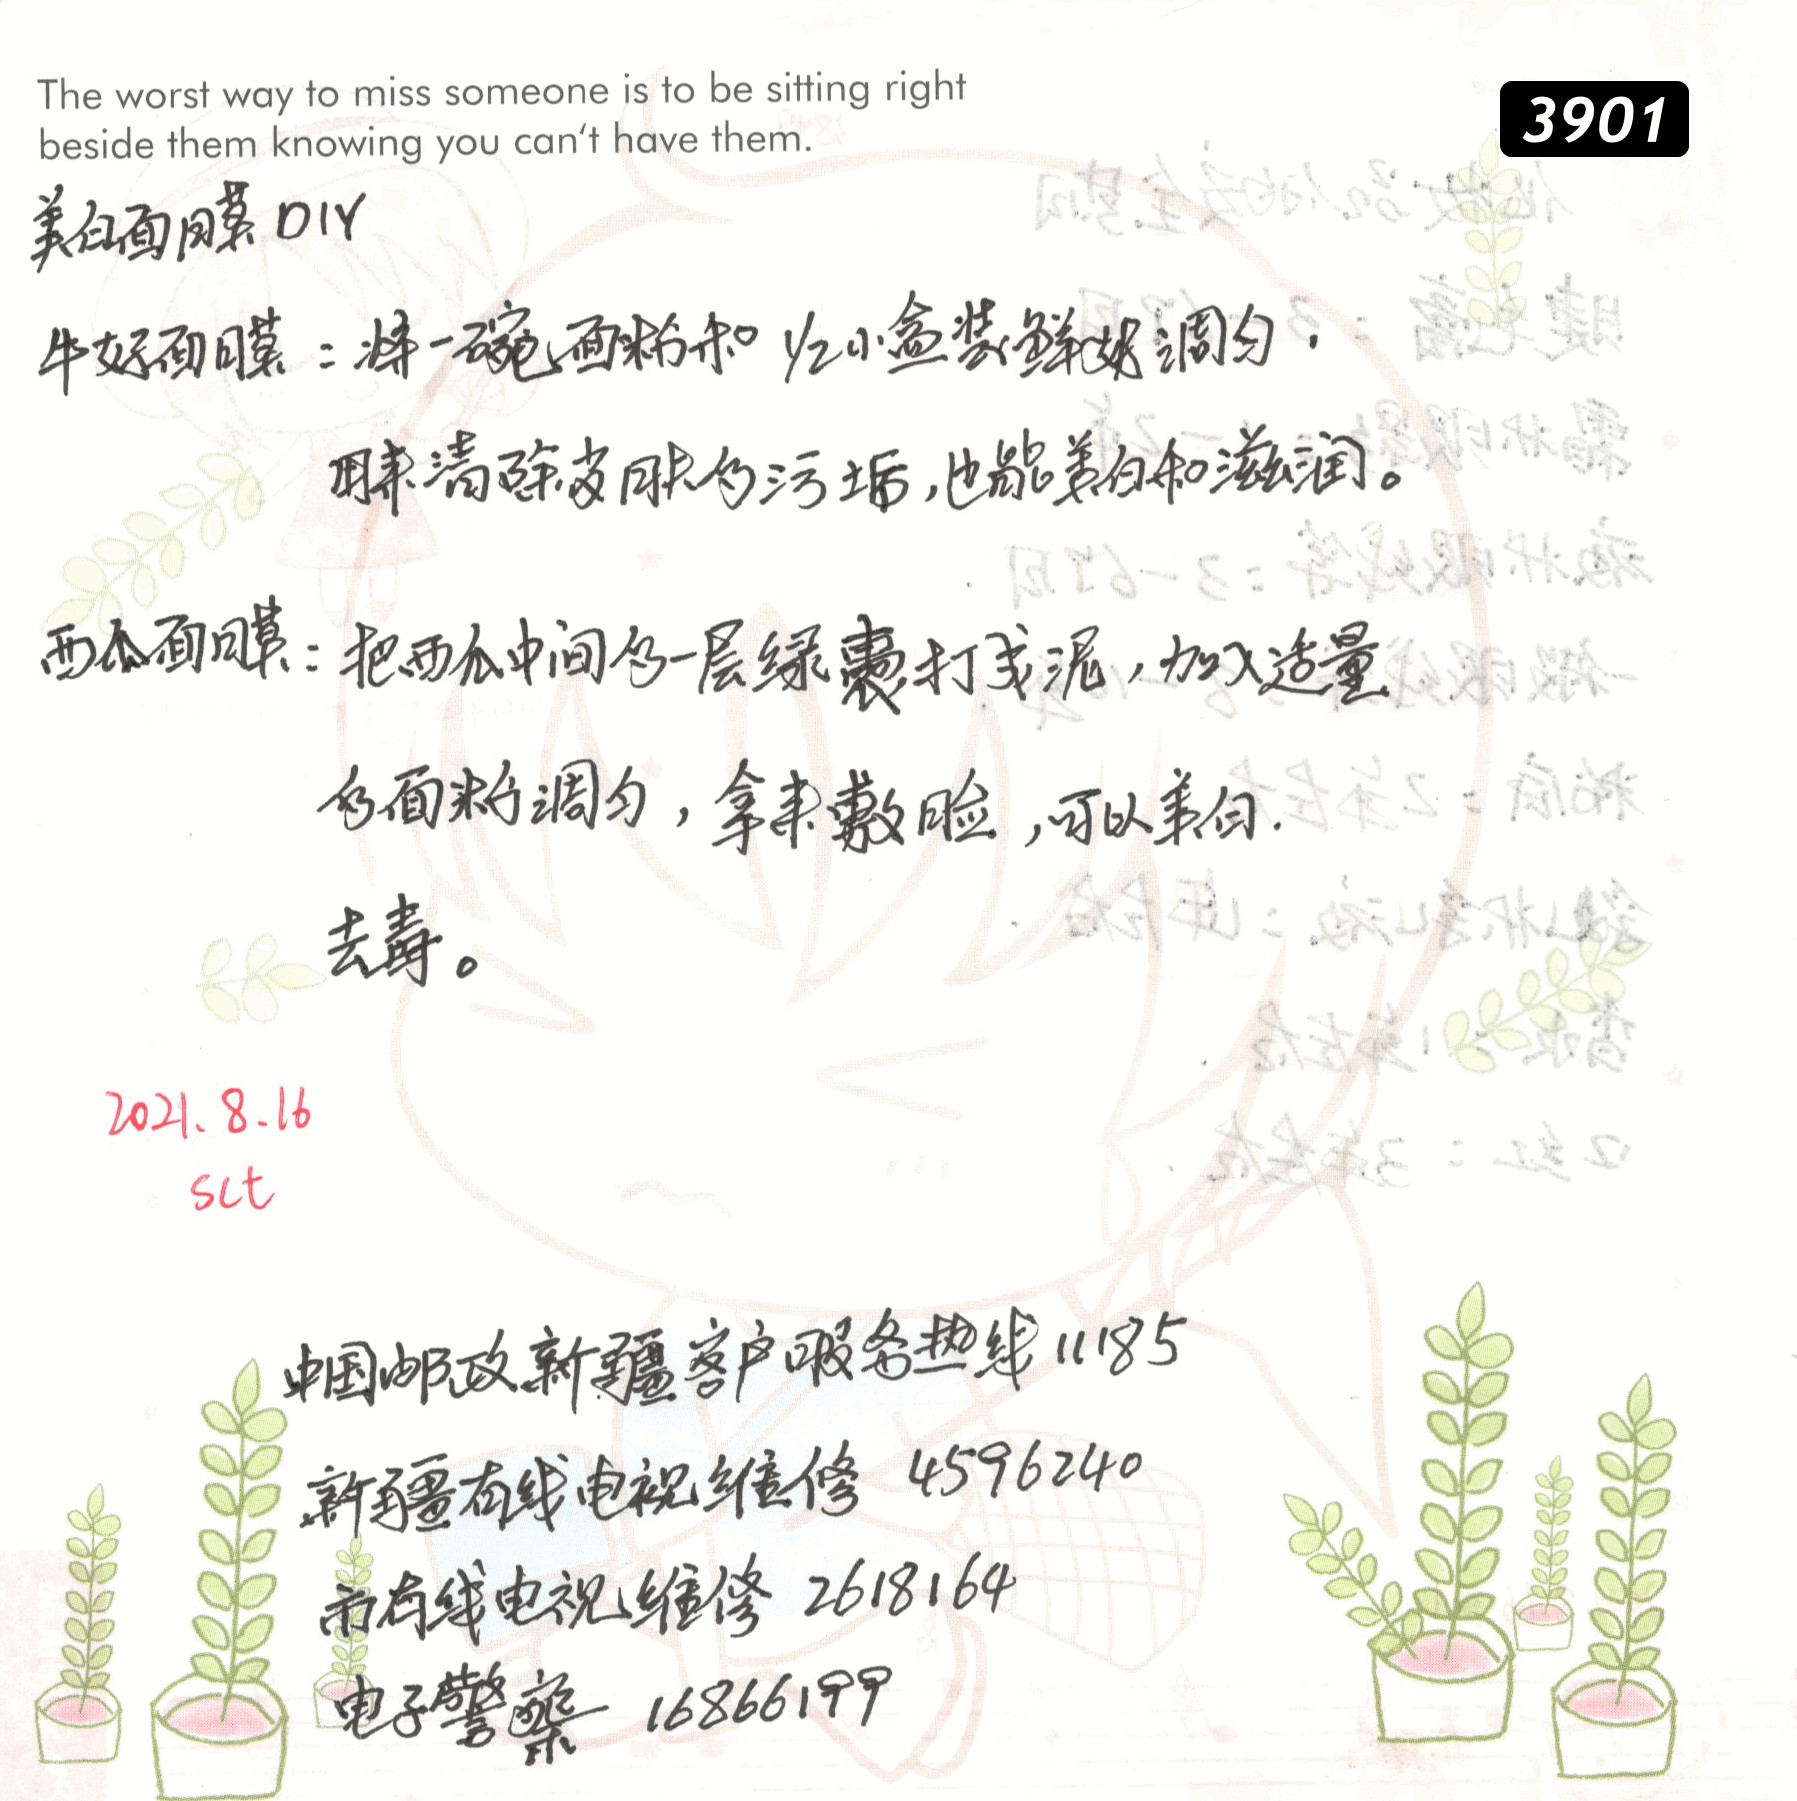 The worst way to miss someone is to be sitting right
beside them knowing you can't have them.
3901
美白面膜 DIY
牛奶面膜：将一碗面粉和 1/2小盒装鲜奶调匀，
用来清除皮肤的污垢，也能美白和滋润。
西瓜面膜：把西瓜中间的一层绿囊打成泥，加入适量
的面粉调匀，拿来敷脸，可以美白.
去毒。
2021.8.16
sct
中国邮政新疆客户服务热线 11185
新疆有线电视维修 4596240
市有线电视维修 2618164
电子警察 16866199